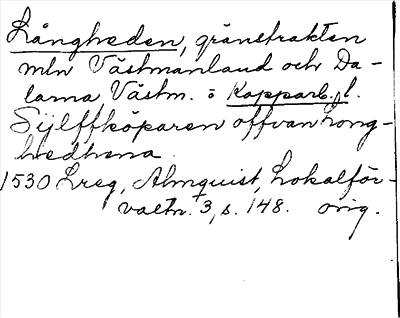 Långheden, gränstrakten
mln Västmanland och Da-
larna, Västm. o Kopparb. l.
Sijlffköparen offvan Long-
hedhena.
1530 Lreg, Almquist, Lokalför-
valtn. 3, s. 148. orig.